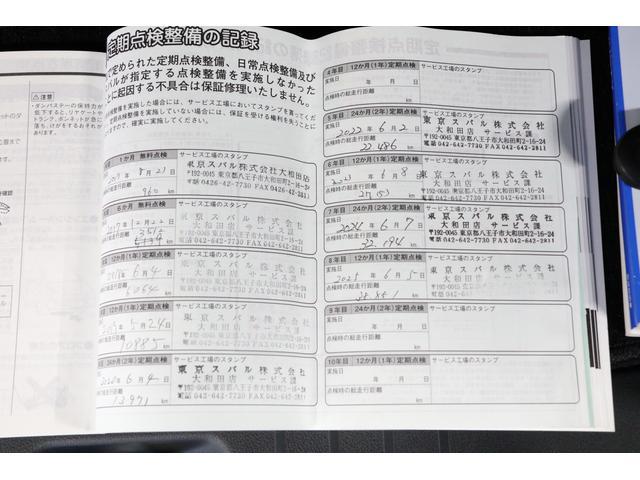 定期点検整備の記録
で定められた定期点検整備、日常点検整備及び
バルが指定する点検整備を実施しなかった
とに起因する不具合は保証修理いたしません。
検整備を実施した場合には、サービス工場においてスタンプを貰ってくだ
定期点検整備を実施していない場合には、保証を受ける権利を失うことに
ますので、確実に実施してください。
注意
・ダンパステーの保持力が
1か月 無料点検
サービス工場のスタンプ
東京スバル株式会社大和田店
〒192-0045 東京都八王子市大和田町2-16-24
電話 0426-42-7730 FAX 0426-42-2811
960 km
6か月 無料点検
サービス工場のスタンプ
東京スバル株式会社
大和田店 サービス課
〒192-0045 東京都八王子市大和田町2-16-24
電話 042-642-7730 FAX 042-642-2811
12か月(1年)定期点検
サービス工場のスタンプ
6月4日
東京スバル株式会社
大和田店 サービス課
〒192-0045 東京都八王子市大和田町2-16-24
電話 042-642-7730 FAX 042-642-2811
12か月(1年)定期点検
サービス工場のスタンプ
5月24日
東京スバル株式会社
大和田店 サービス課
〒192-0045 東京都八王子市大和田町2-16-24
電話 042-642-7730 FAX 042-642-2811
10985 km
24か月(2年)定期点検
サービス工場のスタンプ
2020年6月4日
東京スバル株式会社
大和田店 サービス課
〒192-0045 東京都八王子市大和田町2-16-24
電話 042-642-7730 FAX 042-642-2811
13,971 km
4年目 12か月(1年)定期点検
サービス工場のスタンプ
実施日 年 月 日
点検時の総走行距離 km
5年目 24か月(2年)定期点検
サービス工場のスタンプ
実施日 2022年6月2日
点検時の総走行距離 22,486 km
東京スバル株式会社
大和田店 サービス課
〒192-0045 東京都八王子市大和田町2-16-24
電話 042-642-7730 FAX 042-642-2811
6年目 12か月(1年)定期点検
サービス工場のスタンプ
実施日 2023年6月8日
点検時の総走行距離 km
東京スバル株式会社
大和田店 サービス課
〒192-0045 東京都八王子市大和田町2-16-24
電話 042-642-7730 FAX 042-642-2811
7年目 24か月(2年)定期点検
サービス工場のスタンプ
実施日 2024年6月7日
点検時の総走行距離 32,094 km
東京スバル株式会社
大和田店 サービス課
〒192-0045 東京都八王子市大和田町2-16-24
電話 042-642-7730 FAX 042-642-2811
8年目 12か月(1年)定期点検
サービス工場のスタンプ
実施日 2025年6月5日
点検時の総走行距離 km
東京スバル株式会社
大和田店 サービス課
〒192-0045 東京都八王子市大和田町2-16-24
電話 042-642-7730 FAX 042-642-2811
9年目 24か月(2年)定期点検
サービス工場のスタンプ
実施日 年 月 日
点検時の総走行距離 km
10年目 12か月(1年)定期点検
サービス工場のスタンプ
実施日 年 月 日
点検時の総走行距離 km